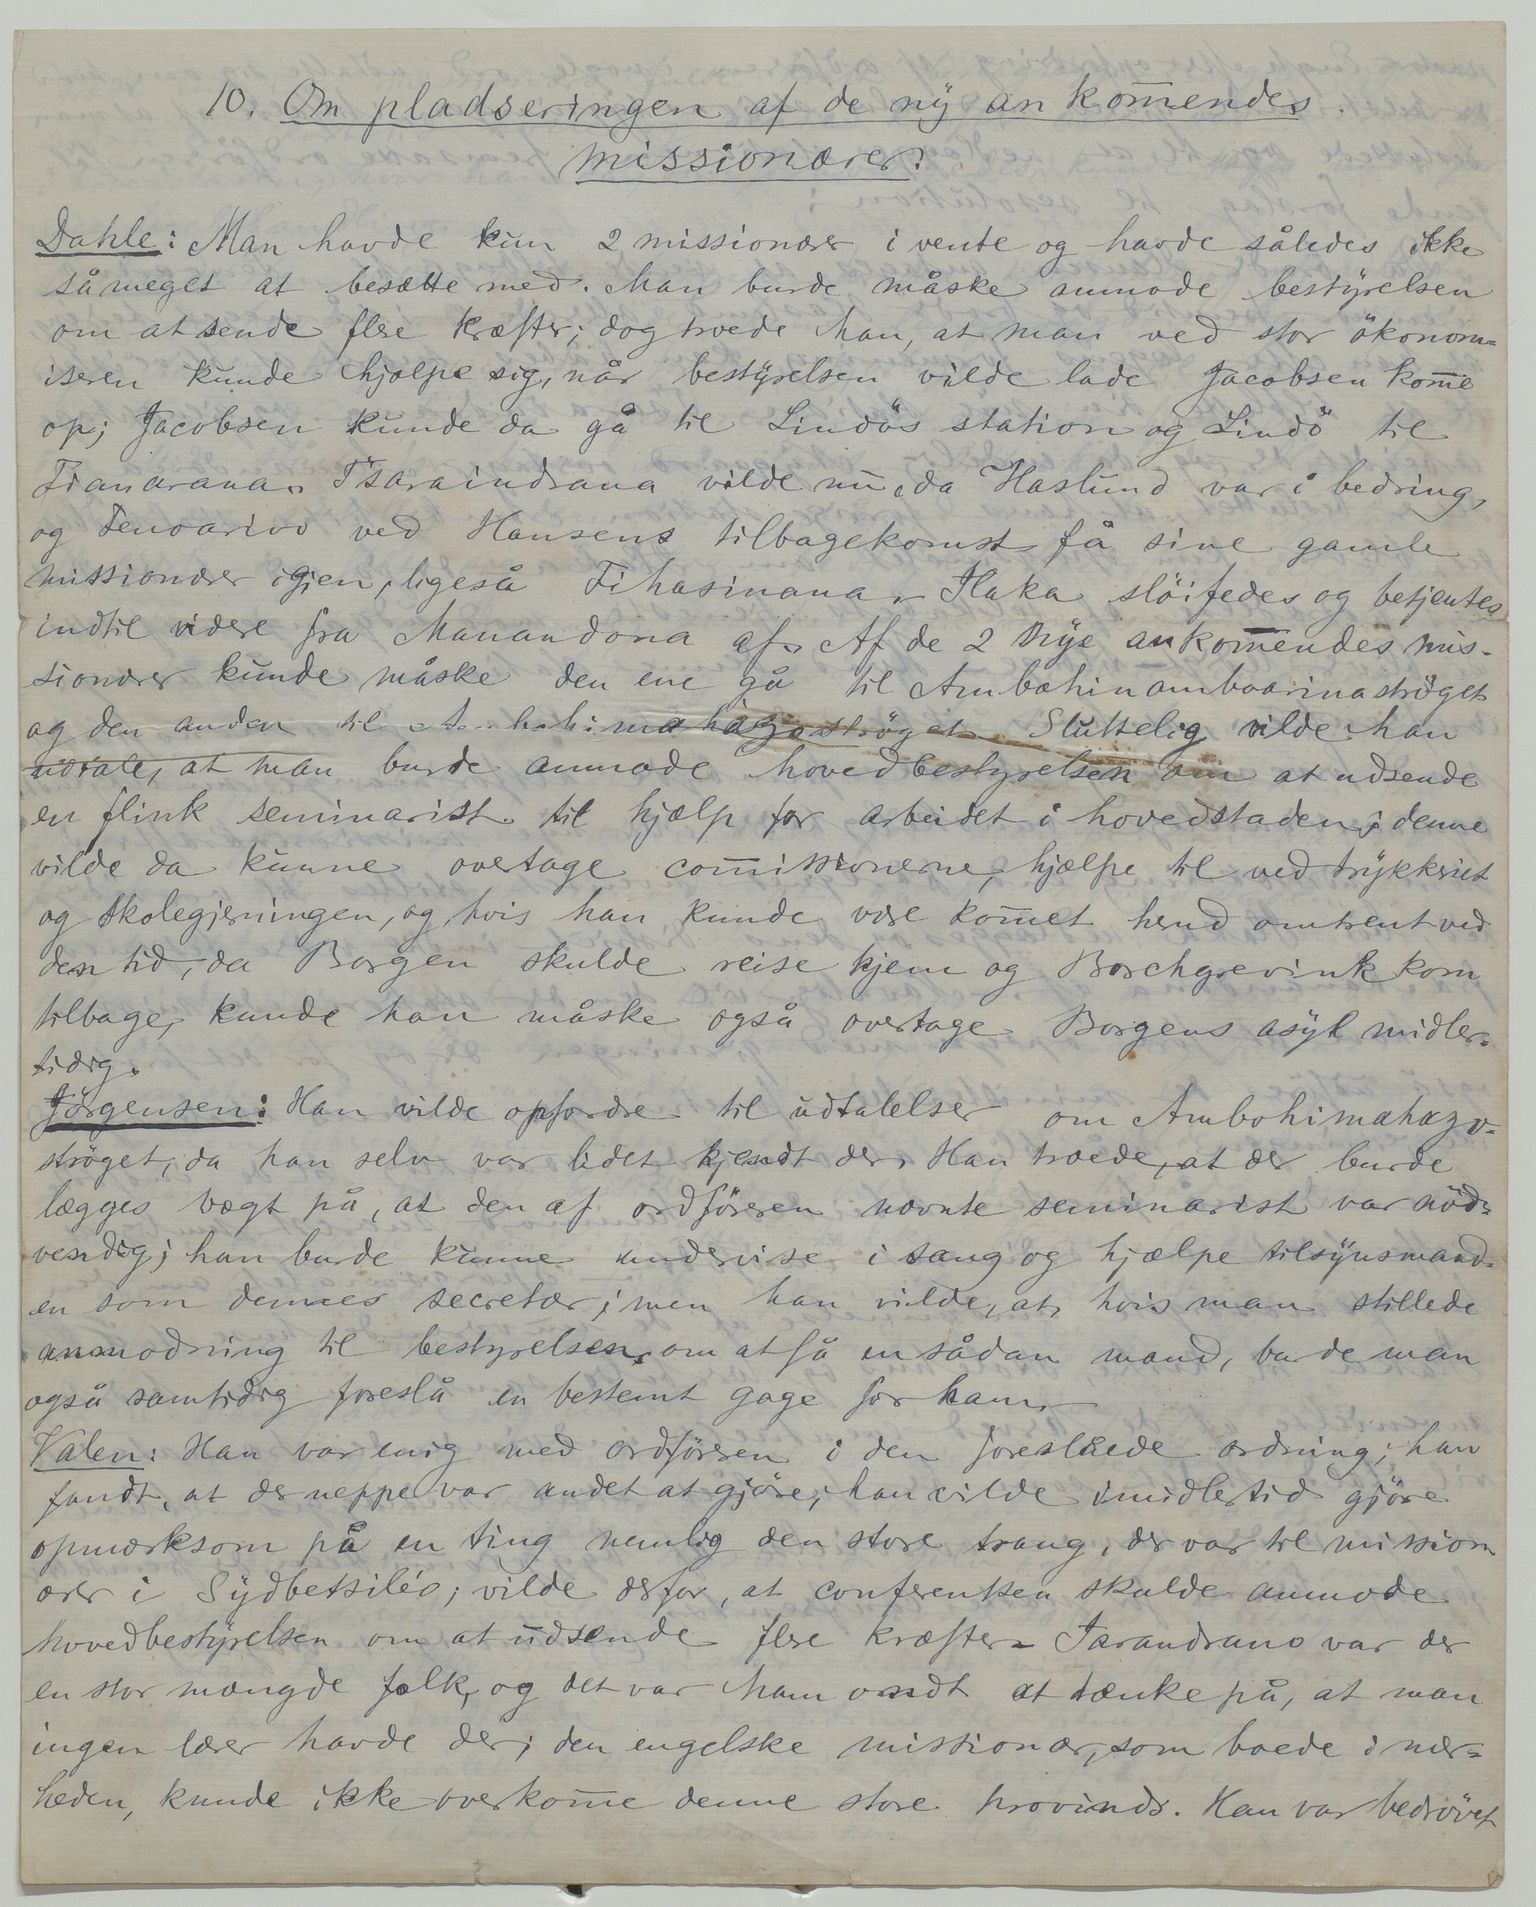 10. Om pladseringen af de ny ankom̅endes
missionærer.
Dahle: Man havde kun 2 missionærer i vente og havde således ikke
så meget at besætte med. Man burde måske anmode bestyrelsen
om at sende flere kræfter; dog troede han, at man ved stor økonom=
iseren kunde hjælpe sig, når bestyrelsen vilde lade Jacobsen kom̅e
op; Jacobsen kunde da gå til Lindøs station og Lindø til
Fianarana. Tsaraindrana vilde nu, da Haslund var i bedring,
og Fenoarivo ved Hansens tilbagekomst få sine gamle
missionærer igjen, ligeså Fihasinana. Ilaka sløifedes og betjentes
indtil videre fra Manandona af. Af de 2 nye ankom̅endes mis-
sionærer kunde måske den ene gå til Ambohinamboarinastrøget
og den anden til Ambohimahazostrøget. Sluttelig vilde han
udtale, at man burde anmode hovedbestyrelsen om at udsende
en flink seminarist til hjælp for arbeidet i hovedstaden; denne
vilde da kunne overtage com̅issionerne, hjælpe til ved trykkeriet
og skolegjerningen, og hvis han kunde være kom̅et herud omtrent ved
den tid, da Borgen skulde reise hjem og Borchgrevink kom
tilbage, kunde han måske også overtage Borgens asyl midler=
tidig.
Jørgensen: Han vilde opfordre til udtalelser om Ambohimahazo-
strøget, da han selv var lidet kjendt der. Han troede, at der burde
lægges vægt på, at den af ordføreren nævnte seminarist var nød=
vendig; han burde kunne undervise i sang og hjælpe tilsynsmand-
en som dennes secretær; men han vilde, at hvis man stillede
anmodning til bestyrelsen om at få en sådan mand, burde man
også samtidig foreslå en bestemt gage for ham.
Valen: Han var enig med ordføreren i den foreslåede ordning; han
fandt, at der neppe var andet at gjøre; han vilde imidlertid gjøre
opmærksom på en ting nemlig den store trang, der var til mission
ærer i Sydbetsiléo; vilde derfor, at conferentsen skulde anmode
hovedbestyrelsen om at udsende flere kræfter. I Tarandrano var der
en stor mængde folk, og det var ham ondt at tænke på, at man
ingen lærer havde der; den engelske missionær, som boede i nær=
heden, kunde ikke overkom̅e denne store provinds. Han var bedrøvet